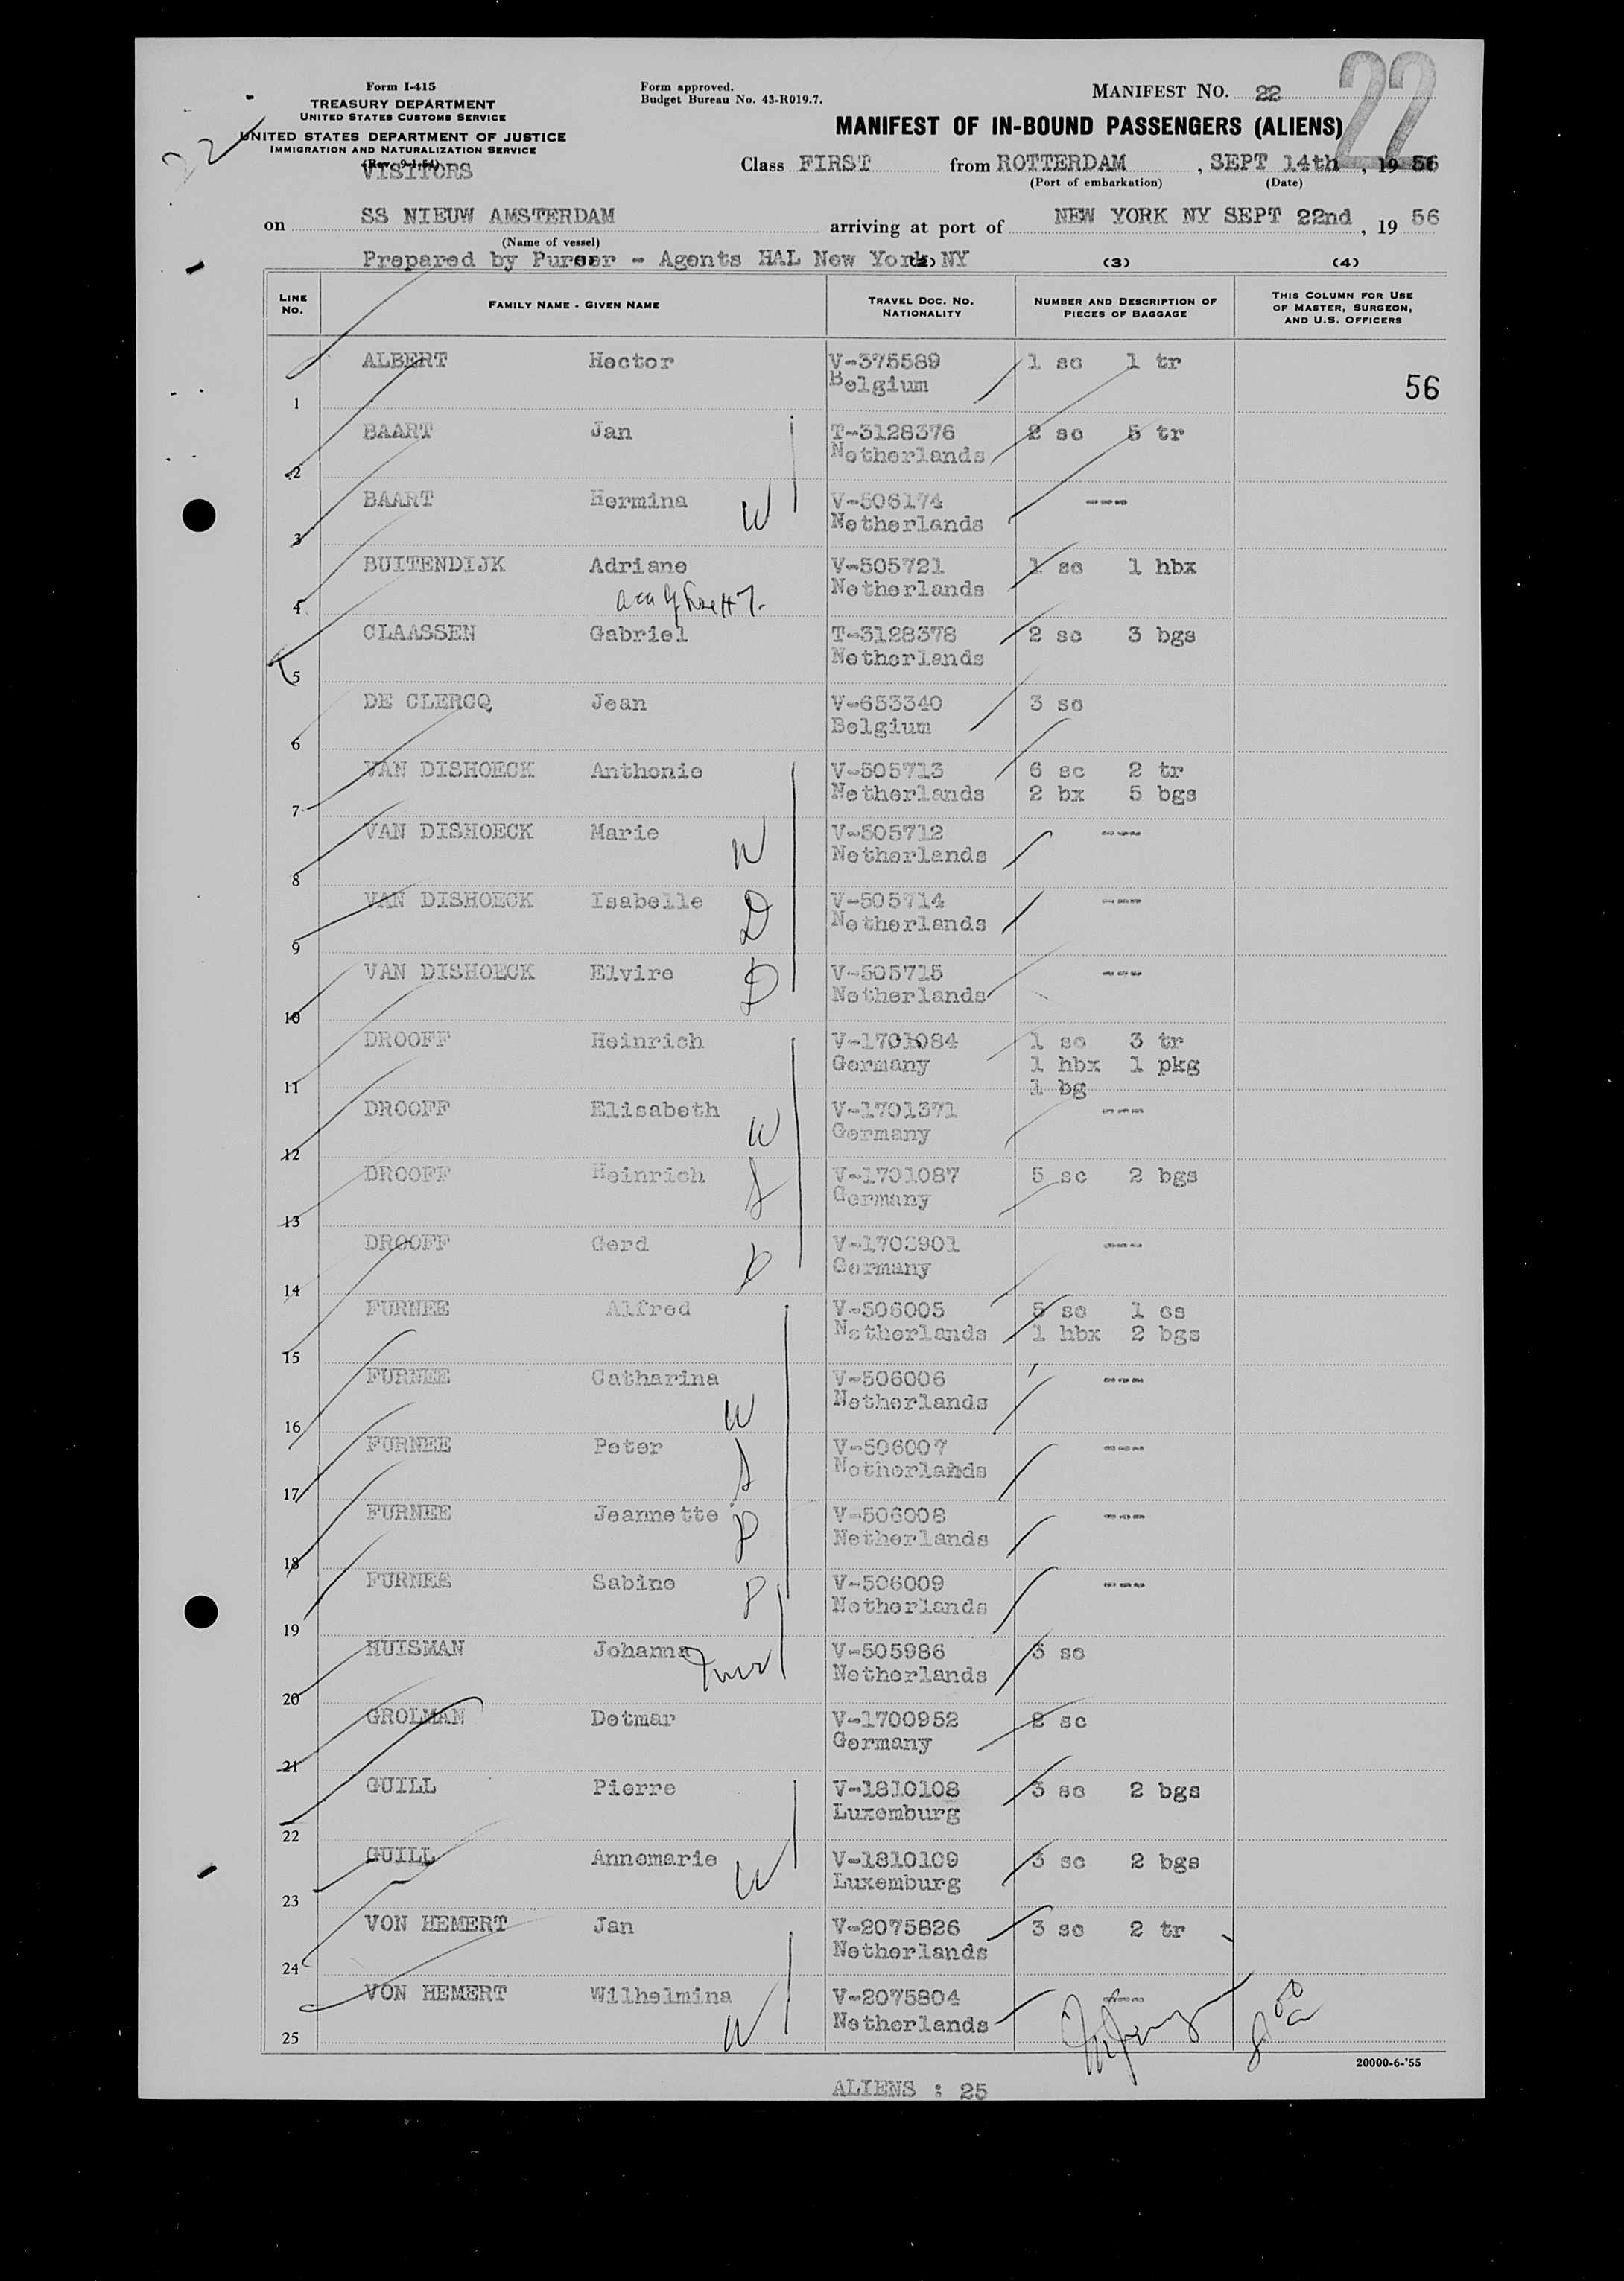 22
Form I-415
TREASURY DEPARTMENT
UNITED STATES CUSTOMS SERVICE
UNITED STATES DEPARTMENT OF JUSTICE
IMMIGRATION AND NATURALIZATION SERVICE
(Rev. 9-1-54)
VISITORS
Form approved.
Budget Bureau No. 43-R019.7.
MANIFEST NO. 22
22
MANIFEST OF IN-BOUND PASSENGERS (ALIENS)
Class FIRST from ROTTERDAM, SEPT 14th, 19 56
(Port of embarkation) (Date)
on SS NIEUW AMSTERDAM arriving at port of NEW YORK NY SEPT 22nd, 19 56
(Name of vessel)
Prepared by Purser - Agents HAL New York NY (3) (4)
LINE NO. FAMILY NAME - GIVEN NAME TRAVEL DOC. NO. NATIONALITY NUMBER AND DESCRIPTION OF PIECES OF BAGGAGE THIS COLUMN FOR USE OF MASTER, SURGEON, AND U.S. OFFICERS
ALBERT Hector V-375589 1 sc 1 tr
1 Belgium 56
BAART Jan T-3128376 2 sc 5 tr
2 Netherlands
BAART Hermina W V-506174 ---
3 Netherlands
BUITENDIJK Adriane V-505721 1 sc 1 hbx
4 Netherlands
CLAASSEN Gabriel T-3128378 2 sc 3 bgs
5 Netherlands
DE CLERCQ Jean V-653340 3 sc
6 Belgium
VAN DISHOECK Anthonie V-505713 6 sc 2 tr
7 Netherlands 2 bx 5 bgs
VAN DISHOECK Marie W V-505712 ---
8 Netherlands
VAN DISHOECK Isabelle D V-505714 ---
9 Netherlands
VAN DISHOECK Elvire D V-505715 ---
10 Netherlands
DROOFF Heinrich V-1701084 1 sc 3 tr
11 Germany 1 hbx 1 pkg
1 bg
DROOFF Elisabeth W V-1701371 ---
12 Germany
DROOFF Heinrich S V-1701087 5 sc 2 bgs
13 Germany
DROOFF Gerd V-1703901 ---
14 Germany
FURNEE Alfred V-506005 5 sc 1 cs
15 Netherlands 1 hbx 2 bgs
FURNEE Catharina W V-506006 ---
16 Netherlands
FURNEE Peter S V-506007 ---
17 Netherlands
FURNEE Jeannette D V-506008 ---
18 Netherlands
FURNEE Sabine D V-506009 ---
19 Netherlands
HUISMAN Johanna V-505986 3 sc
20 Netherlands
GROLMAN Detmar V-1700952 2 sc
21 Germany
GUILL Pierre V-1810108 3 sc 2 bgs
22 Luxemburg
GUILL Annemarie W V-1810109 3 sc 2 bgs
23 Luxemburg
VON HEMERT Jan V-2075826 3 sc 2 tr
24 Netherlands
VON HEMERT Wilhelmina W V-2075804 ---
25 Netherlands
20000-6-'55
ALIENS : 25